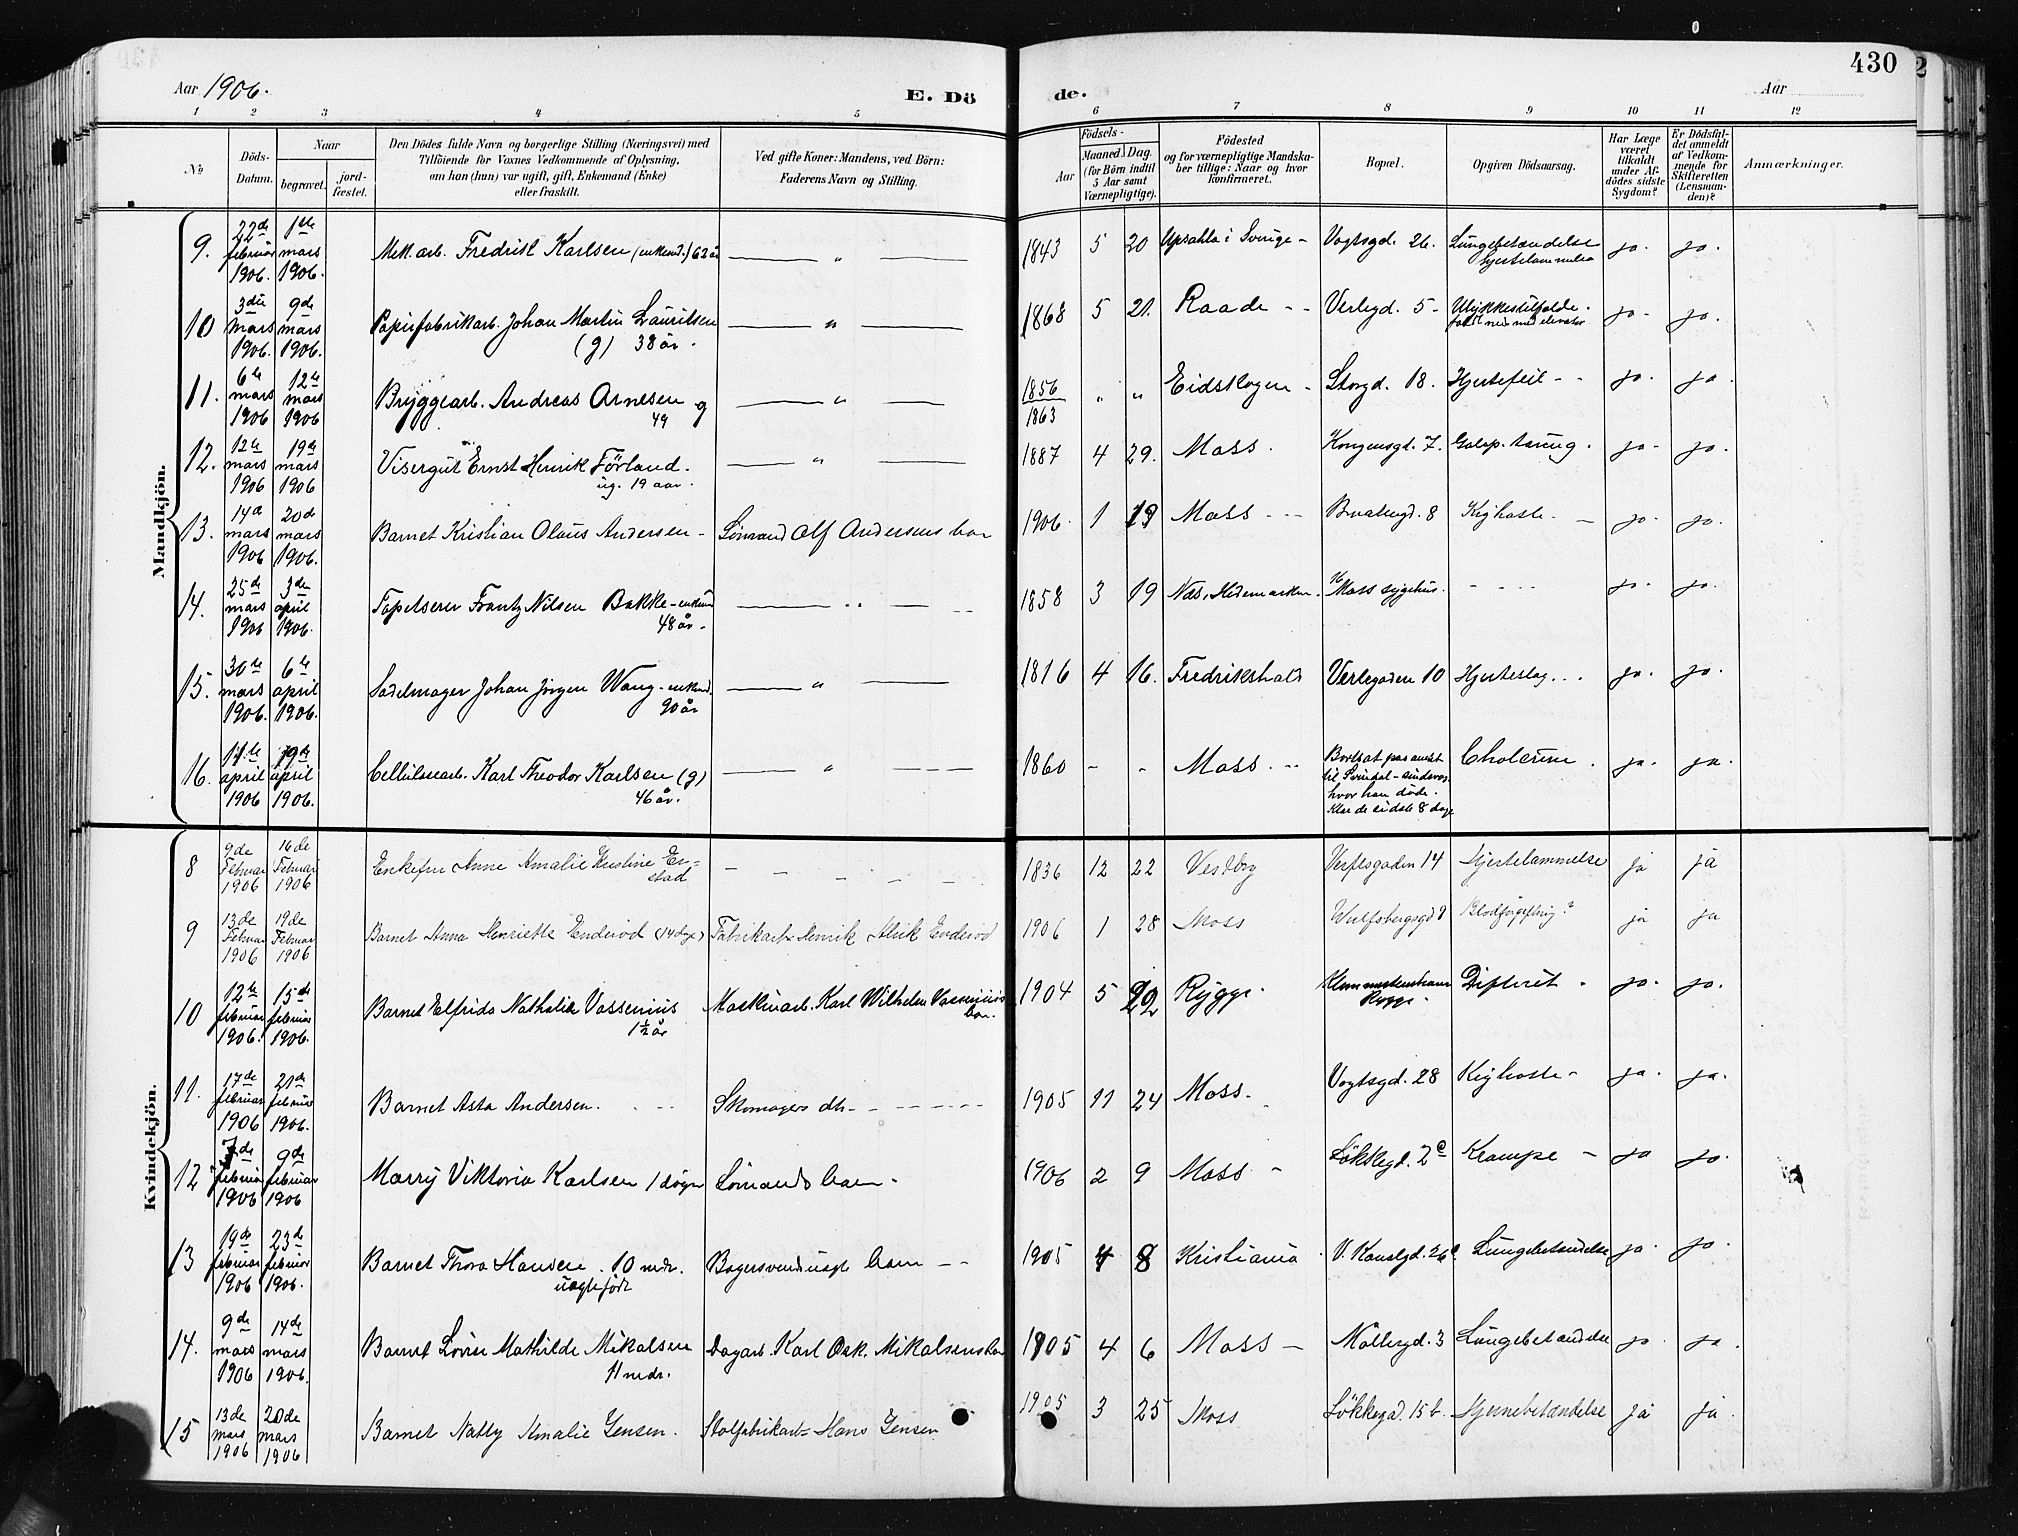 430
Aar 1906.
E. Dö de.
Aar
1 2 3 4 5 6 7 8 9 10 11 12
No
Döds-Datum.
Naar
begravet.
jord-fæstet.
Den Dödes fulde Navn og borgerlige Stilling (Næringsvei) med
Tilföiende for Voxnes Vedkommende af Oplysning,
om han (hun) var ugift, gift, Enkemand (Enke)
eller fraskilt.
Ved gifte Koner: Mandens, ved Börn:
Faderens Navn og Stilling.
Födsels-
Aar
Maaned. Dag.
(for Börn indtil
5 Aar samt
Værnepligtige).
Födested
og for værnepligtige Mandska-
ber tillige: Naar og hvor
konfirmeret.
Bopæl.
Opgiven Dödsaarsag.
Har Læge
været
tilkaldt
under Af-
dödes sidste
Sygdom?
Er Dödsfal-
det anmeldt
af Vedkom-
mende for
Skifteretten
(Lensman-
den)?
Anmærkninger.
Mandkjön.
9. 22de februar 1906. 1ste mars 1906. Mek. arb. Fredrik Karlsen (enkem.) 62 år — " — 1843 5 20 Upsahla i Sverige - Vogtsgd. 26. Lungebetændelse hjertelammelse ja. ja.
10 3die mars 1906. 9de mars 1906. Papirfabrikarb. Johan Martin Lauritsen (g) 38 år. — " — 1868 5 21. Raade - - Verlegd. 5 - Ulykkestilfælde. faldt ned med elevator ja - ja.
11. 6te mars 1906 12te mars 1906 Bryggearb. Andreas Arnesen g 49 — " — 1856 1863 " " Eidskogen - Storgd. 18. Hjertefeil - - ja. ja.
12. 12te mars 1906 19de mars 1906 Visergut Ernst Henrik Förland. ug. 19 aar. — " — 1887 4 29. Moss. Kongensgd. 7. Galop. tæring. ja - ja.
13. 14de mars 1906 20de mars 1906. Barnet Kristian Olaus Andersen - Sömand Alf Andersens bar 1906. 1 19 Moss - - - 8 Kighoste - ja - ja.
14. 25de mars 1906 3die april 1906. Tapetserer Frantz Nilsen Bakke - enkem 48 år. — " — 1858 3 19 Næs, Hedemarken. Moss sygehus. - - - ja - ja.
15. 30te mars 1906. 6te april 1906. Sadelmager Johan Jörgen Wang - enkem. 90 år — " — 1816 4 16. Fredrikshald Verlegaden 10 Hjerteslag ... ja. ja.
16. 11te april 1906 19de april 1906. Cellulosearb. Karl Theodor Karlsen (g) 46 år. — " — 1860 - - Moss. - - Bortsat paa til hvor han döde. de sidste 8 dage Cholerine. ja. ja.
Kvindekjön.
8 9de Februar 1906 16de Februar 1906 Enkefru Anne Amalie Kristine Er=stad - - - - - 1836 12 22 Vestby Verftsgaden 14 Hjertelammelse ja ja
9 13de Februar 1906 19de Februar 1906 Barnet Anna Henriette Enderöd (14 dge) Fabrikarb. Henrik Alrik Enderöd 1906 1 28 Moss Wulfsbergsgd 9 Blodforgiftning? ja ja
10 12te februar 1906. 15de februar 1906. Barnet Elfrida Nathalie Vassenius 1½ år Maskinarb. Karl Wilhelm Vassenius bar. 1904 5 22 Rygge. Rygge. Difterit - ja. ja.
11. 17de februar 1906 21de februar 1906. Barnet Asta Andersen. - - - Skomagers dtr. - - - - - 1905 11 24 Moss. Vogtsgd. 28 Kighoste - ja. ja.
12 7de februar 1906 9de februar 1906 Marry Viktoria Karlsen 1 dögn Sömands barn. 1906 2 9 Moss - Lökkegd. 2c Krampe - ja ja.
13 19de februar 1906 23de februar 1906. Barnet Thora Hansen. 10 mdr. uægtefödt Bagersvend uægt barn - - 1905 4 8 Kristiania. V. Kanalgd. 26 Lungebetændelse ja. ja.
14. 9de mars 1906 14de mars 1906. Barnet Lovise Mathilde Mikalsen 11 mdr. Dagarb. Karl Osk. Mikalsens bar 1905 4 6 Moss - Möllergd. 3 Lungebetændelse ja. ja.
15 13de mars 1906 20de mars 1906 Barnet Natty Amalie Jensen. Stolfabrikarb= Hans Jensen 1905 3 25 Moss Lökkegd. 15 b. Hjernebetændelse ja ja.